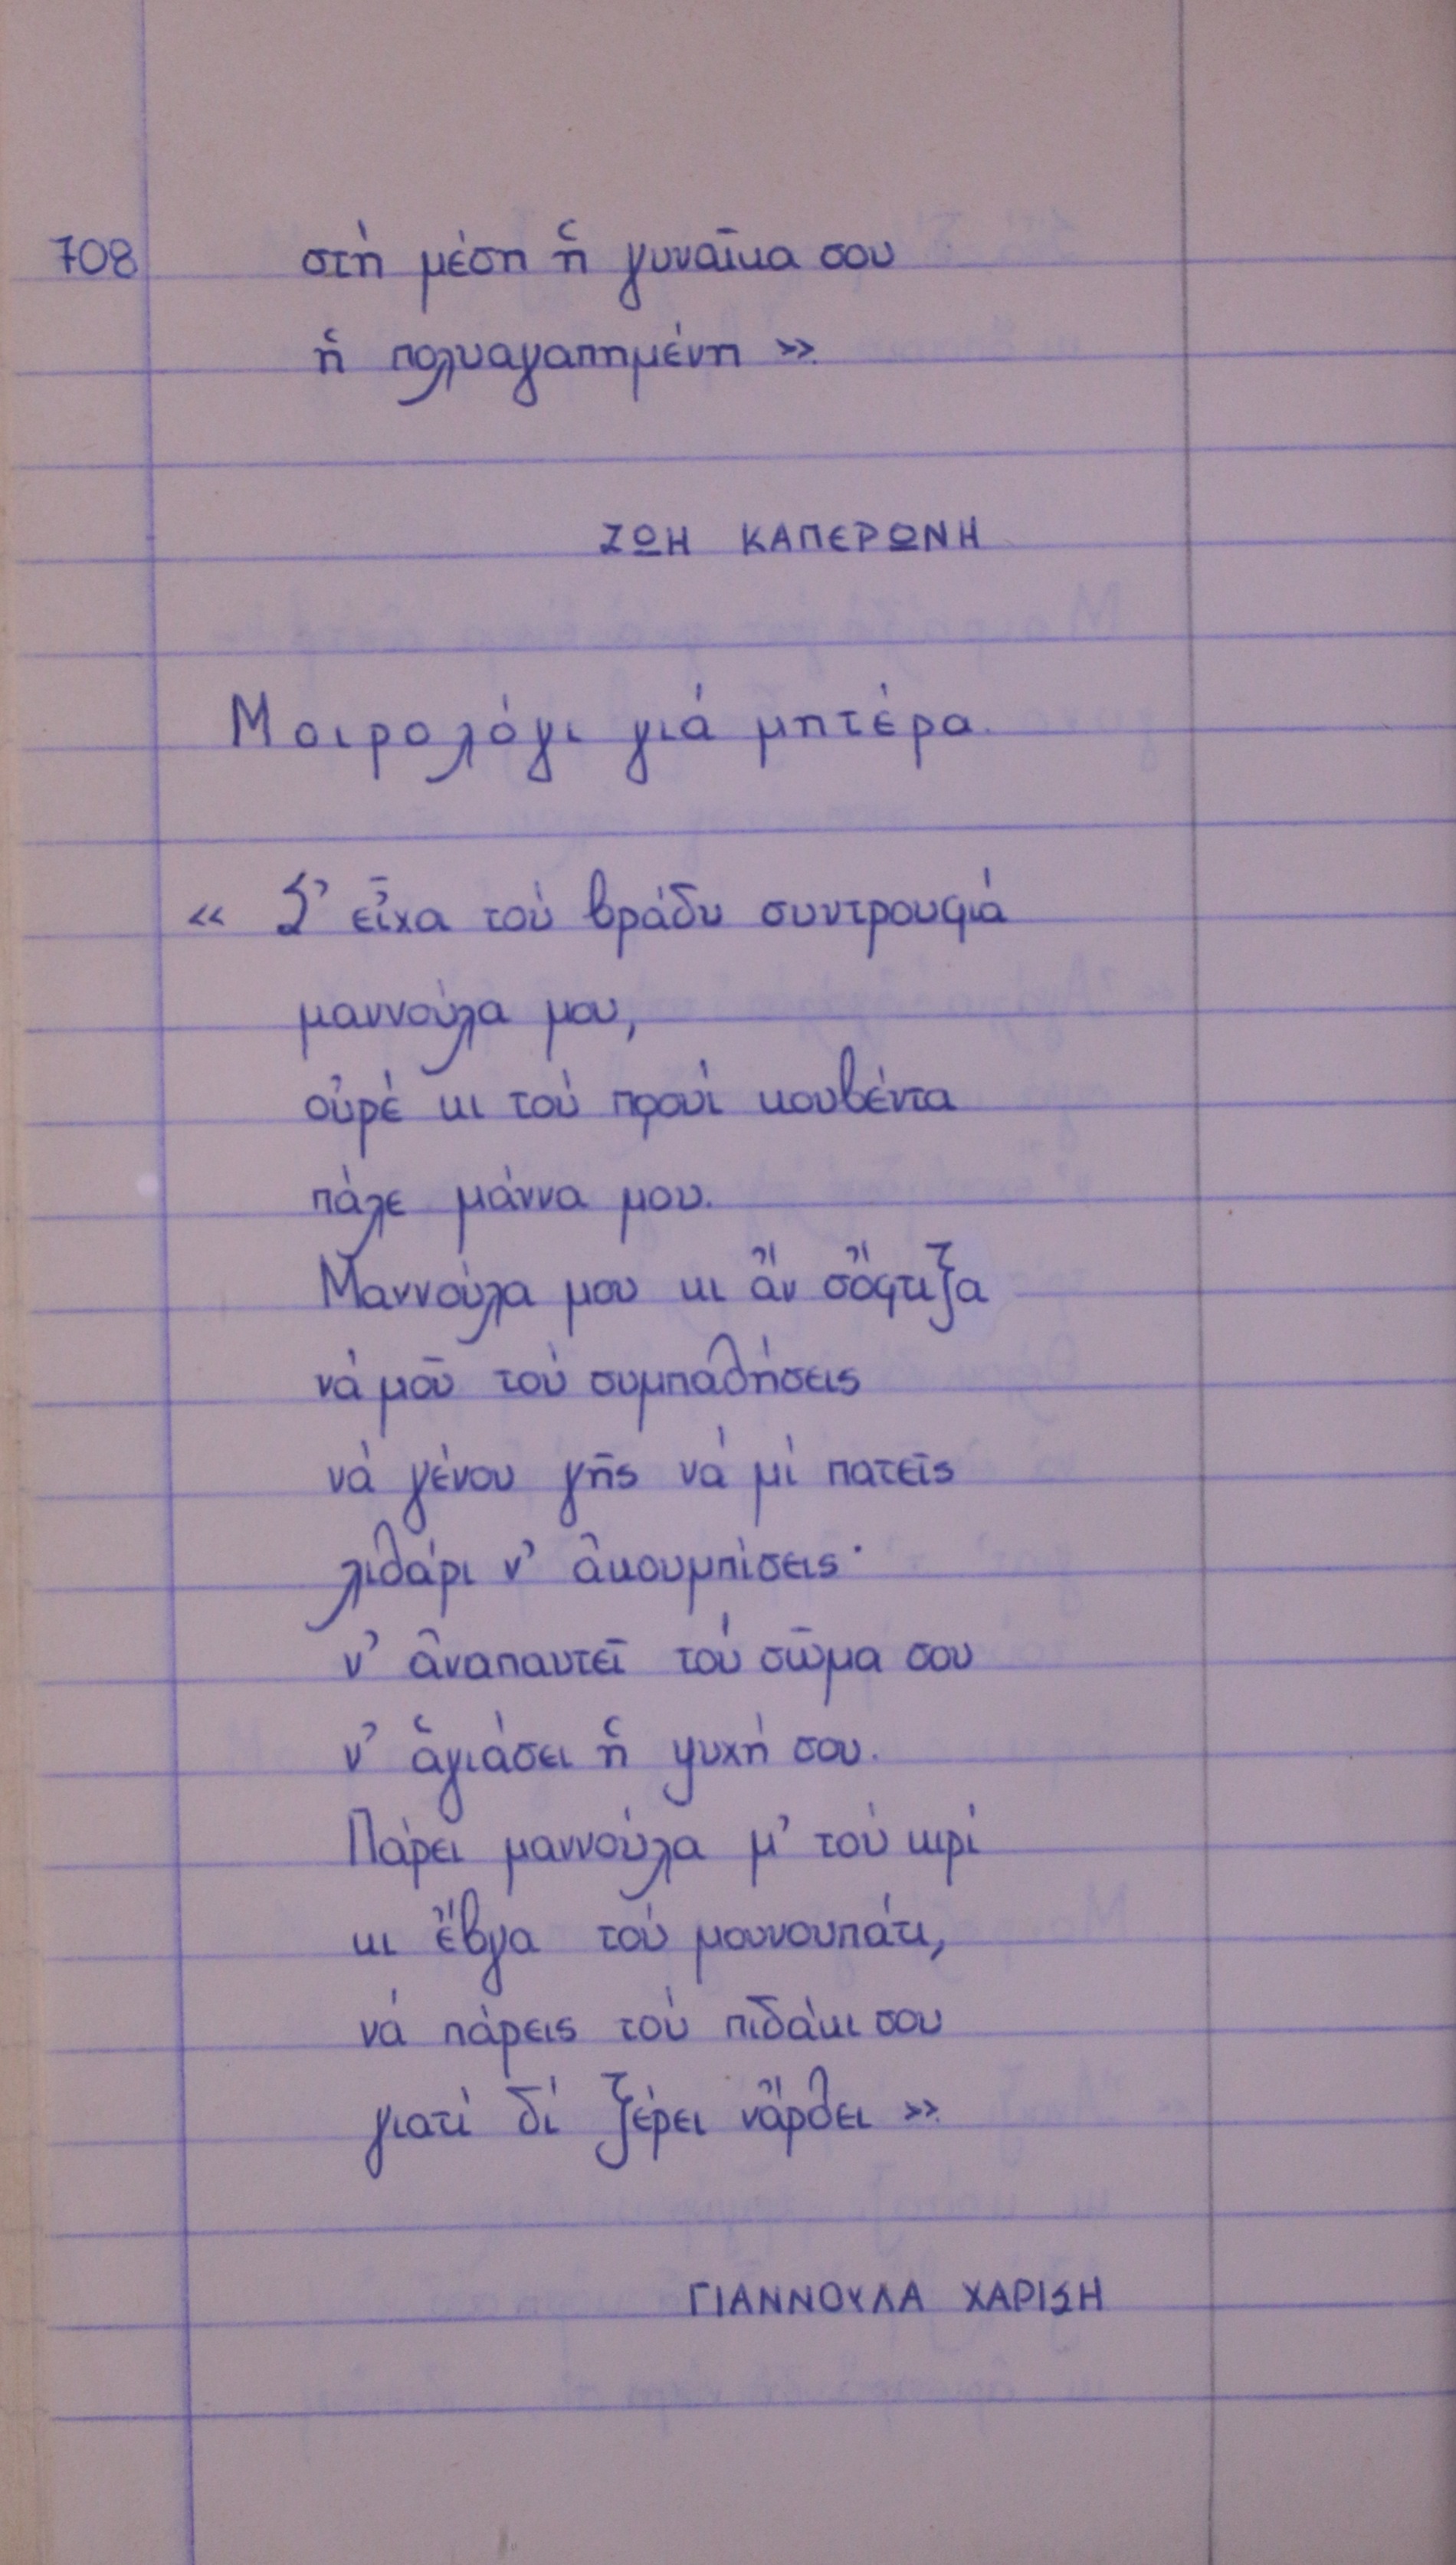 708 στή μέση ἡ γυναῖκα σου
ἡ πολυαγαπημένη »
ΖΩΗ ΚΑΠΕΡΩΝΗ
Μοιρολόγι γιά μητέρα.
« Σ' εἶχα τού βράδυ συντρουφιά
μαννούλα μου,
οὐρέ κι τού προυί κουβέντα
πάλε μάννα μου.
Μαννούλα μου κι ἄν σὄφτιξα
νά μοῦ τού συμπαθήσεις
νά γένου γῆς νά μί πατεῖς
λιθάρι ν' ἀκουμπίσεις·
ν' ἀναπαυτεῖ τού σῶμα σου
ν' ἁγιάσει ἡ ψυχή σου.
Πάρει μαννούλα μ' τού κιρί
κι ἔβγα τού μουνουπάτι,
νά πάρεις τού πιδάκι σου
γιατί δί ξέρει νἄρθει »
ΓΙΑΝΝΟΥΛΑ ΧΑΡΙΣΗ